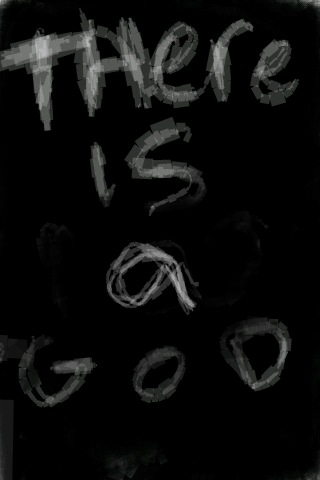 THere
is
a
GOD